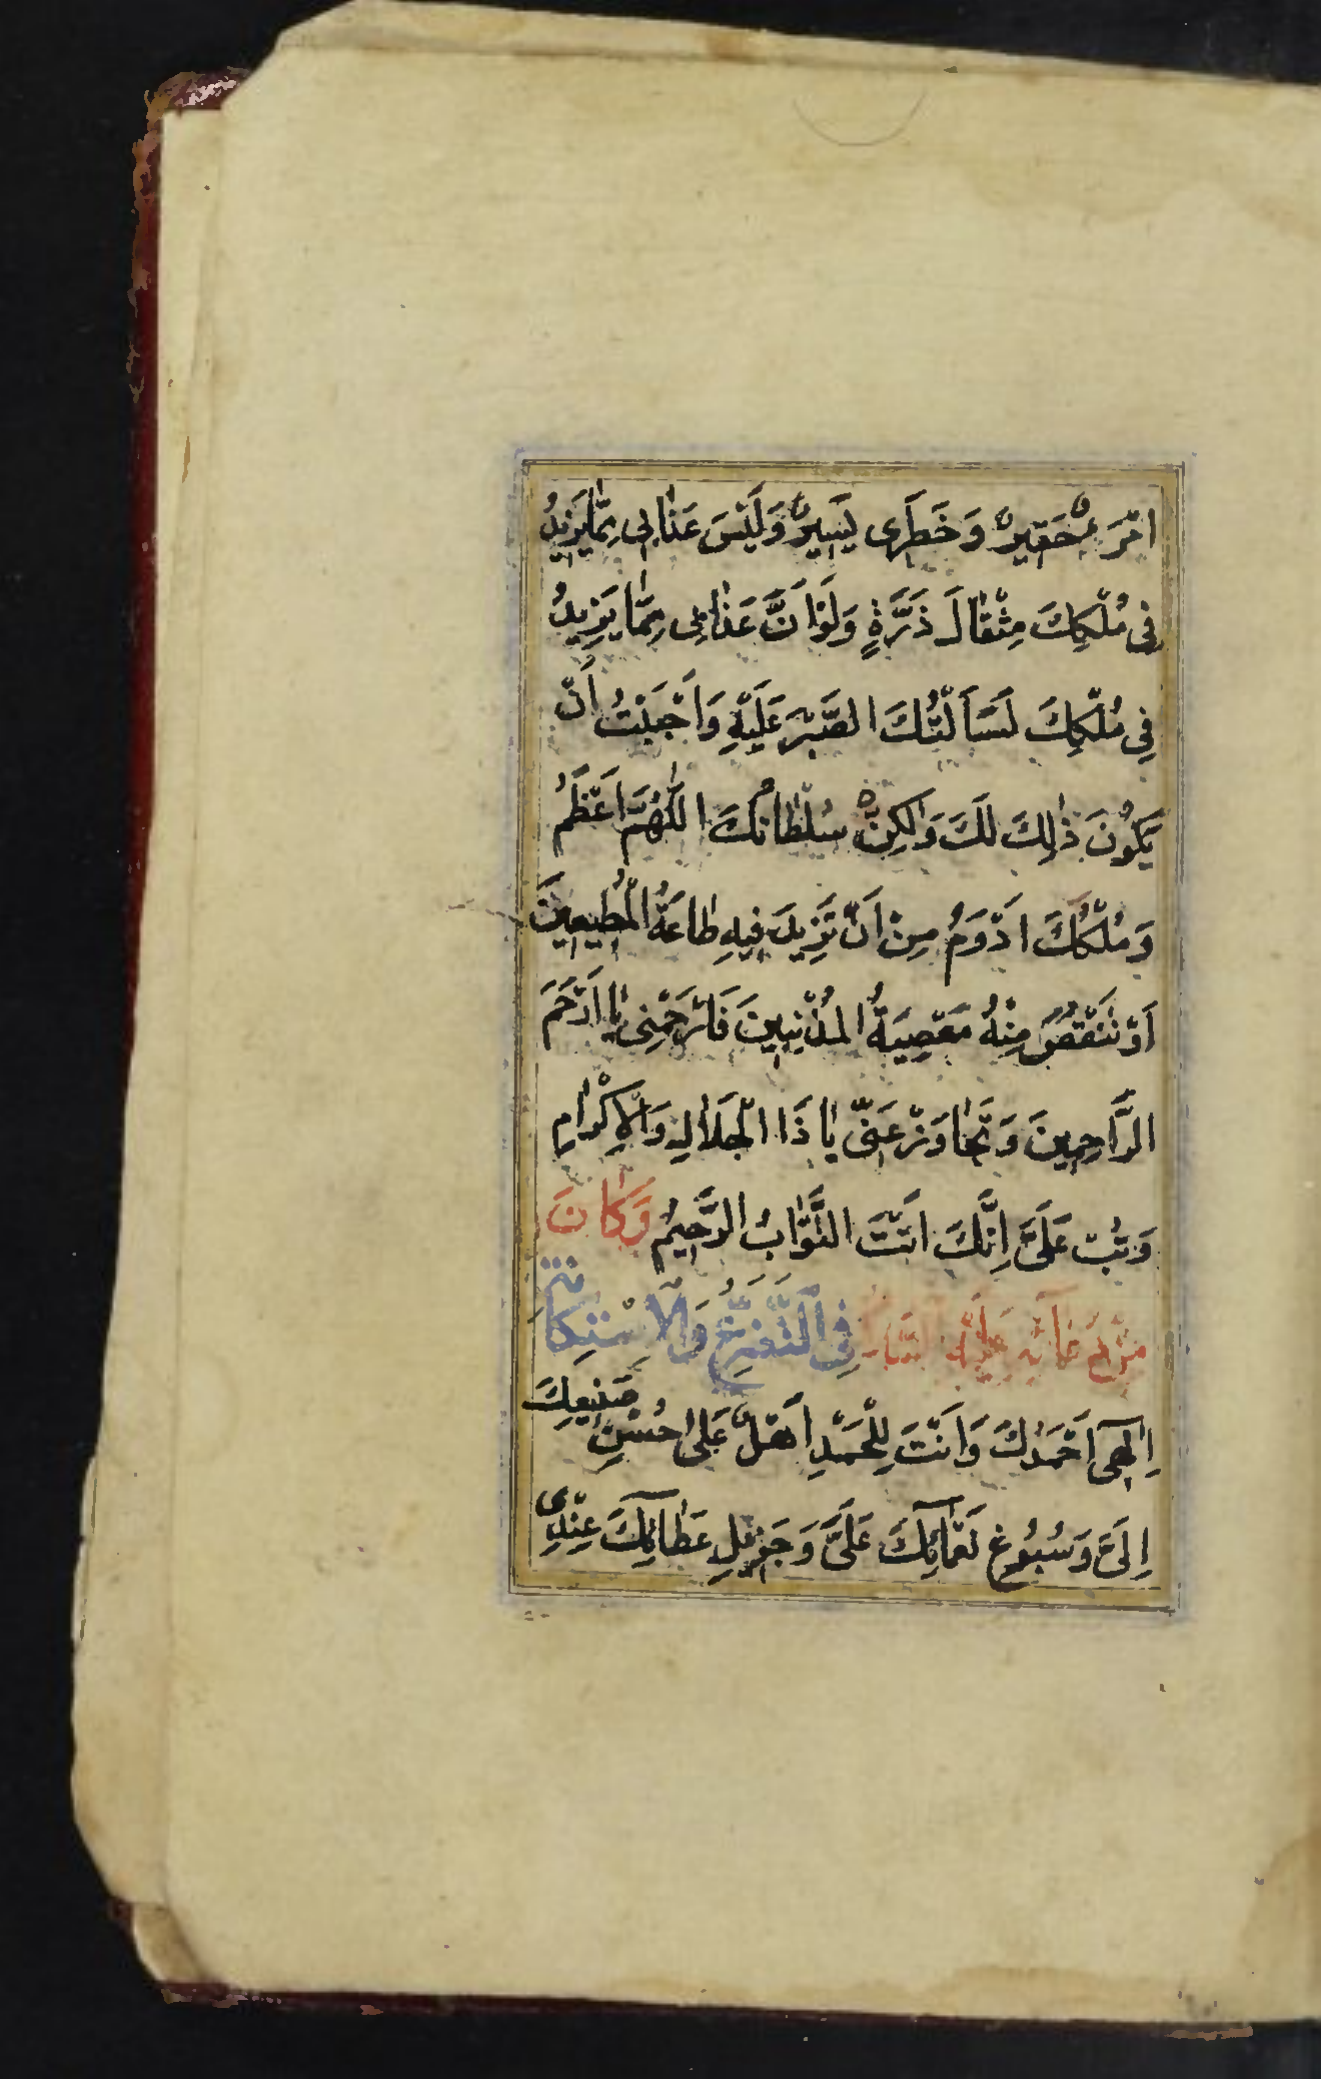 امْرَءٌ حَقِيرٌ وَخَطَرِى يَسِيرٌ وَلَيْسَ عَذَابِى مِمَّا يَزِيدُ
فِى مُلْكِكَ مِثْقَالَ ذَرَّةٍ وَلَوْ اَنَّ عَذَابِى مِمَّا يَزِيدُ
فِى مُلْكِكَ لَسَاَلْتُكَ الصَّبْرَ عَلَيْهِ وَاَحْبَبْتُ اَنْ
يَكُونَ ذٰلِكَ لَكَ وَلٰكِنْ سُلْطَانُكَ اللّٰهُمَّ اَعْظَمُ
وَمُلْكُكَ اَدْوَمُ مِنْ اَنْ تَزِيدَ فِيهِ طَاعَةُ الْمُطِيعِينَ
اَوْ تَنْقُصَ مِنْهُ مَعْصِيَةُ الْمُذْنِبِينَ فَارْحَمْنِى يَا اَرْحَمَ
الرَّاحِمِينَ وَتَجَاوَزْ عَنِّى يَا ذَا الْجَلَالِ وَالْاِكْرَامِ
وَتُبْ عَلَىَّ اِنَّكَ اَنْتَ التَّوَّابُ الرَّحِيمُ وَكَانَ
مِنْ دُعَآئِهِ عَلَيْهِ السَّلَام فِى التَّضَرُّعِ وَالْاِسْتِكَانَةِ
اِلٰهِى اَحْمَدُكَ وَاَنْتَ لِلْحَمْدِ اَهْلٌ عَلٰى حُسْنِ صَنِيعِكَ
اِلَىَّ وَسُبُوغِ نَعْمَآئِكَ عَلَىَّ وَجَزِيلِ عَطَآئِكَ عِنْدِى